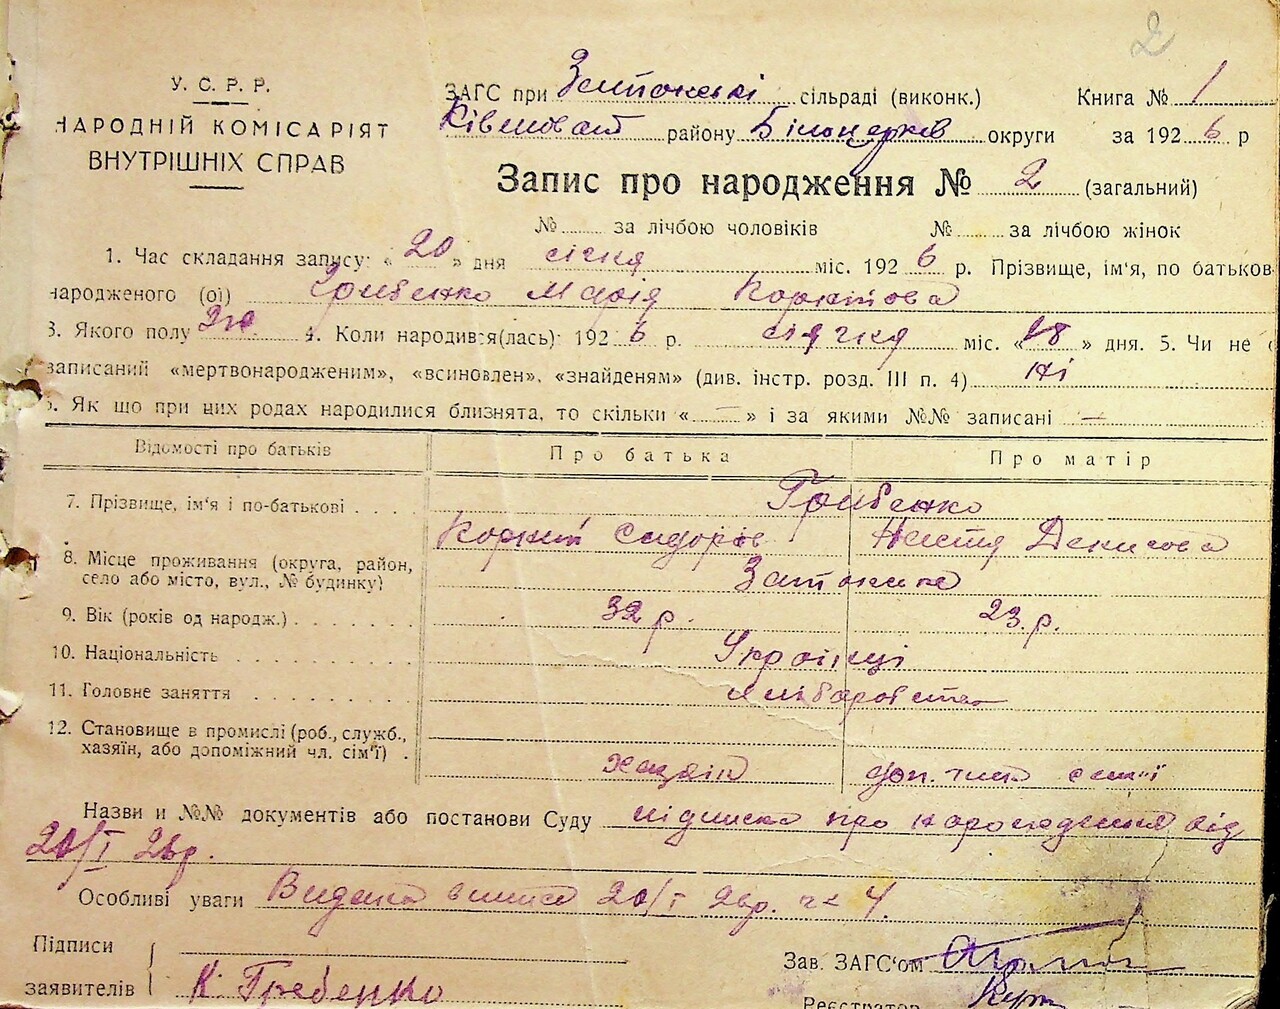 2
У. С. Р. Р.
НАРОДНІЙ КОМІСАРІЯТ
ВНУТРІШНІХ СПРАВ
ЗАГС при сільраді (виконк.) Книга № 1
району Білоцерків округи за 1926 р
Запис про народження № 2 (загальний)
№ за лічбою чоловіків № за лічбою жінок
1. Час складання запису: « 20 » дня січня міс. 1926 р. Прізвище, ім'я, по батьков
народженого (ої) Грибенко Марія
3. Якого полу жін. 4. Коли народився(лась): 1926 р. січня міс. «18» дня. 5. Чи не
записаний «мертвонародженим», «всиновлен», «знайденям» (див. інстр. розд. III п. 4) ні
6. Як що при цих родах народилися близнята, то скільки « — » і за якими №№ записані —
Відомості про батьків Про батька Про матір
7. Прізвище, ім'я і по-батькові . . . Грибенко
Сидорів Настя Денисова
8. Місце проживання (округа, район,
село або місто, вул., № будинку)
9. Вік (років од народж.) . . . . . . . 32 р. 23 р.
10. Національність . . . . . . . . . . Українці
11. Головне заняття . . . . . . . . хліборобство
12. Становище в промислі (роб., служб.,
хазяїн, або допоміжний чл. сім'ї) . хазяїн доп. член
Назви и №№ документів або постанови Суду підписка про народження від
20/I 26р.
Особливі уваги Видана 20/I 26р. 4.
Підписи
заявителів К. Гребенко
Зав. ЗАГС'ом
Реєстратор